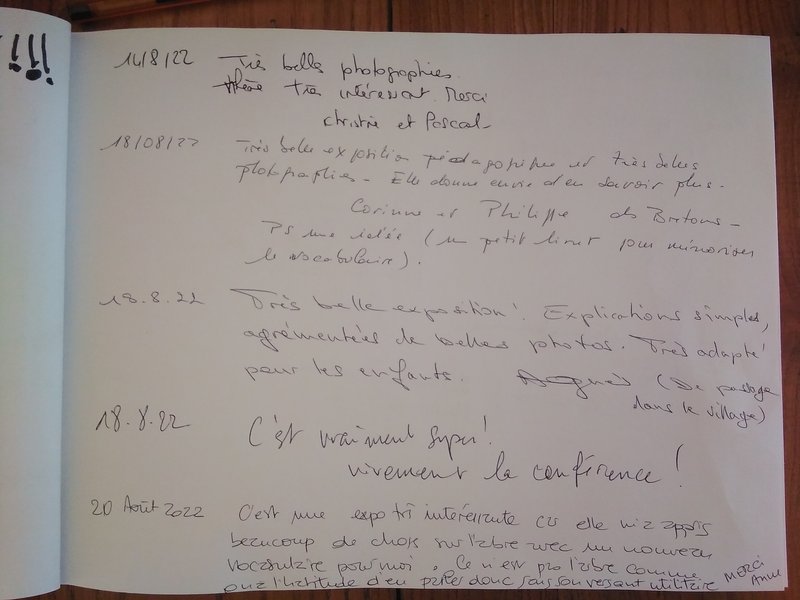 !!!
14/8/22 Très belles photographies.
thème très intéressant. Merci
Christine et Pascal
18/08/22 Très belle exposition pédagogique et très belles
photographies - Elle donne envie d'en savoir plus -
Corinne et Philippe des Bretons -
PS une idée (un petit livret pour mémoriser
le vocabulaire).
18.8.22 Très belle exposition! Explications simples,
agrémentées de belles photos. Très adapté
pour les enfants. (De passage
dans le village)
18.8.22 C'est vraiment super!
vivement la conférence!
20 Août 2022 C'est une expo très intéressante car elle m'a appris
beaucoup de choses sur l'arbre avec un nouveau
vocabulaire pour moi. Ce n'est pas l'arbre comme
on a l'habitude d'en parler donc sans son versant utilitaire MERCI
Anne